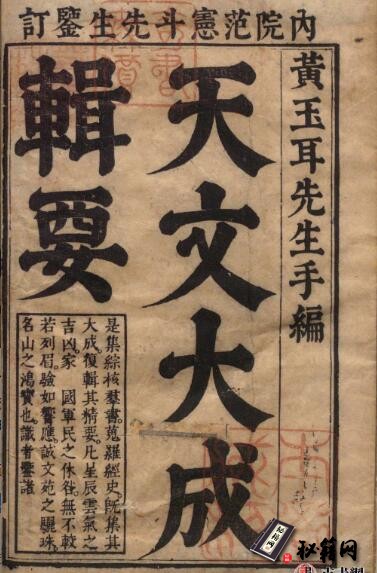 內院范憲斗先生鑒訂
黃玉耳先生手編
天文大成
輯要
是集綜核羣書蒐羅經史既集其
大成復輯其精要凡星辰雲氣之
吉凶家國軍民之休咎無不較
若列眉驗如響應誠文苑之驪珠
名山之鴻寶也識者鑒諸
秘籍网